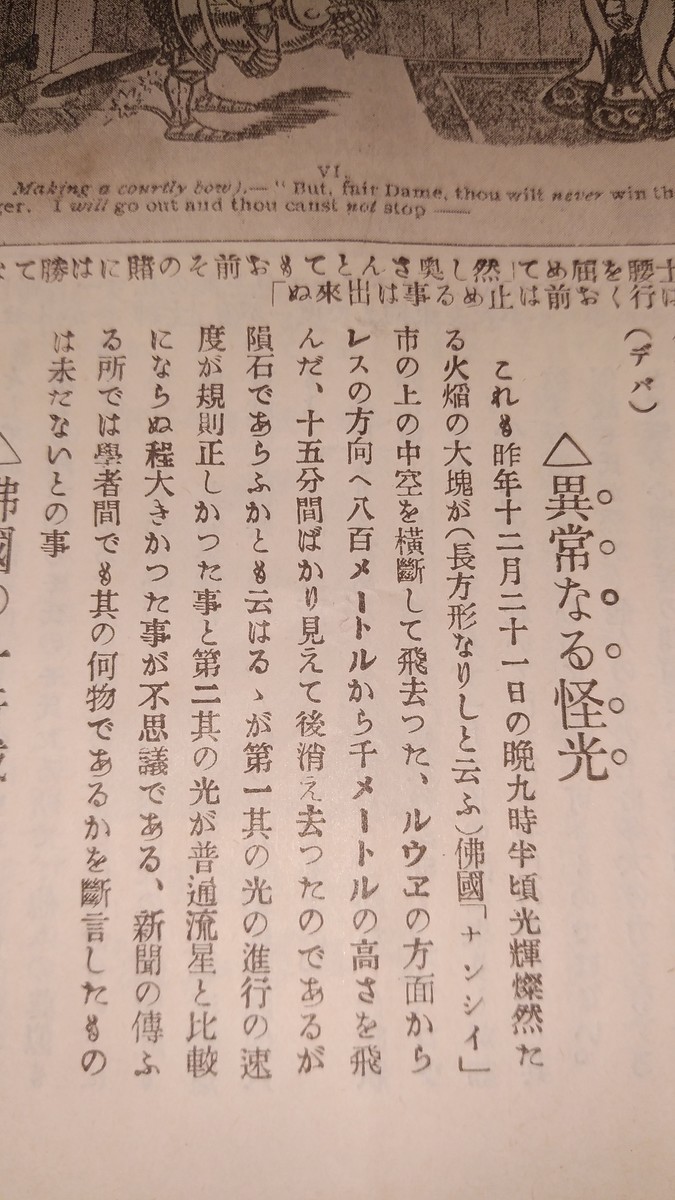 VI.
Making a courtly bow).—" But, fair Dame, thou wilt never win th
ger. I will go out and thou canst not stop ——
士腰を屈めて「然し奥さんとてもお前その賭には勝て
は行くお前は止める事は出來ぬ」
(デバ)
△異常なる怪光
これも昨年十二月二十一日の晩九時半頃光輝燦然た
る火焔の大塊が(長方形なりしと云ふ)佛國「ナンシイ」
市の上の中空を橫斷して飛去つた、ルウヱの方面から
レスの方向へ八百メートルから千メートルの高さを飛
んだ、十五分間ばかり見えて後消え去つたのであるが
隕石であらふかとも云はるゝが第一其の光の進行の速
度が規則正しかつた事と第二其の光が普通流星と比較
にならぬ程大きかつた事が不思議である、新聞の傳ふ
る所では學者間でも其の何物であるかを斷言したもの
は未だないとの事
△佛國の一